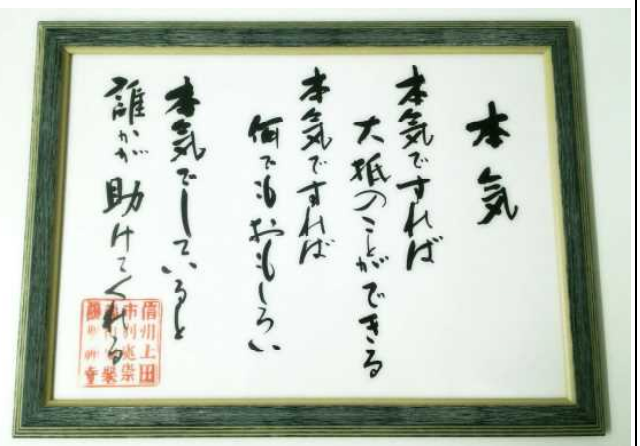 本気
本気ですれば
大抵のことができる
本気ですれば
何でもおもしろい
本気でしていると
誰かが助けてくれる
信州上田